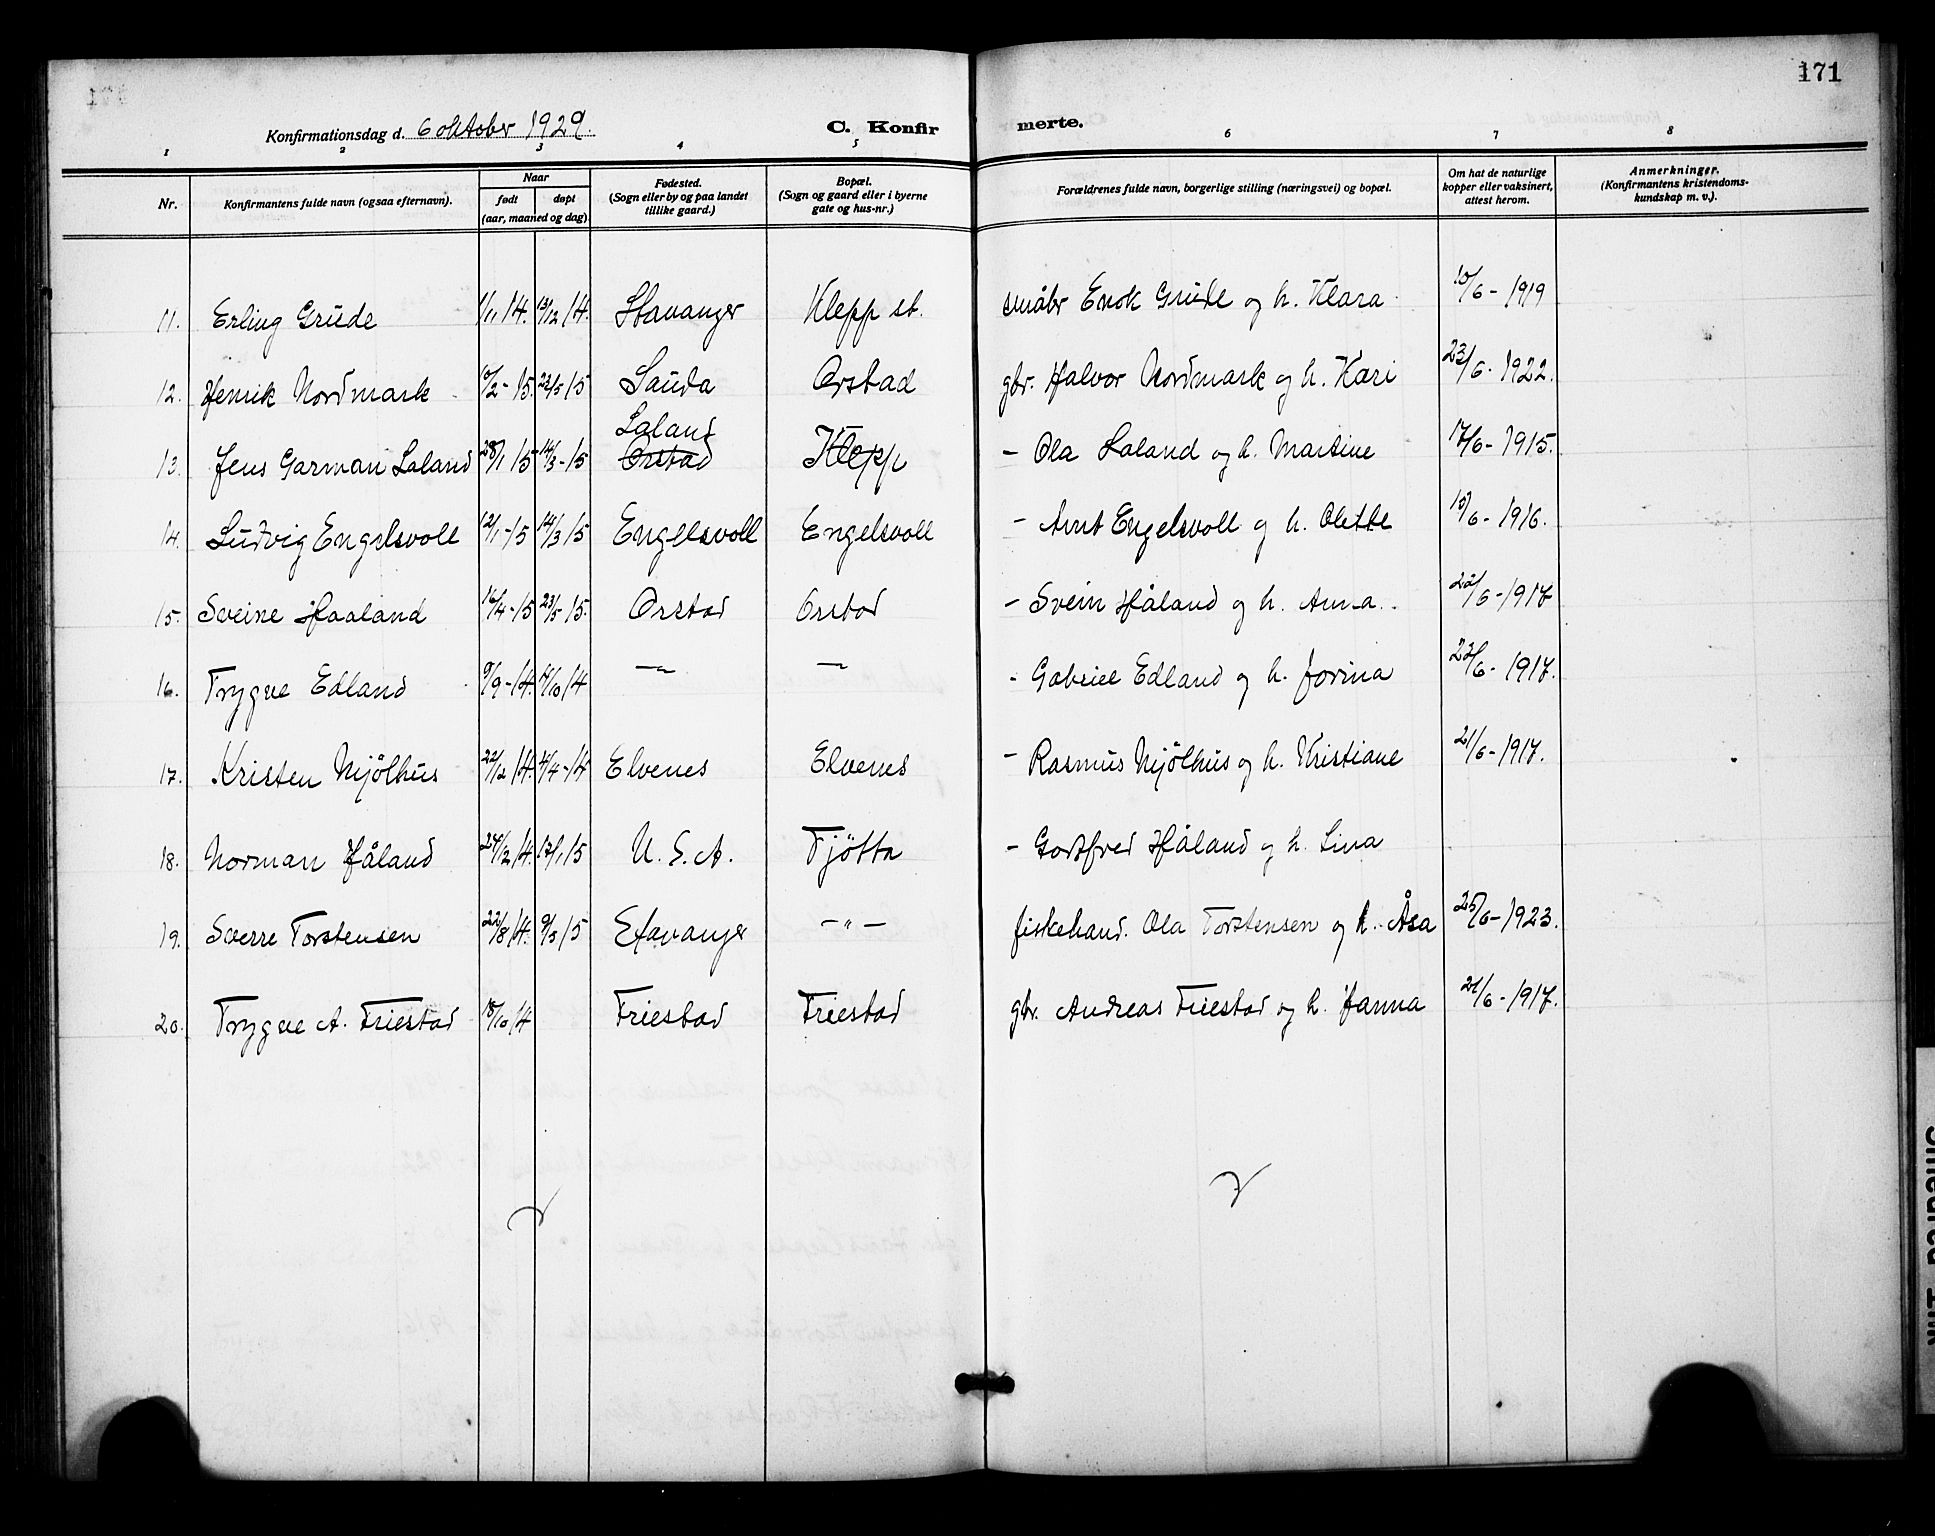 171
Konfirmationsdag d. 6 oktober 1929. C. Konfir merte.
1 2 3 4 5 6 7 8
Nr. Konfirmantens fulde navn (ogsaa efternavn). Naar født døpt (aar, maaned og dag). Fødested. (Sogn eller by og paa landet tillike gaard.) Bopæl. (Sogn og gaard eller i byerne gate og hus-nr.) Forældrenes fulde navn, borgerlige stilling (næringsvei) og bopæl. Om hat de naturlige kopper eller vaksinert, attest herom. Anmerkninger. (Konfirmantens kristendoms-kundskap m. v.).
11. Erling Grude 1/11 14. 13/12 14. Stavanger Klepp st. småbr Enok Grude og h. Klara 10/6 - 1919
12. Henrik Nordmark 10/2 - 15. 23/5 15 Sauda Orstad gbr. Halvor Nordmark og h. Kari 23/6 - 1922.
Laland
13. Jens Garman Laland 28/1 15 14/3 - 15 Orstad Klepp - Ola Laland og h. Martine 17/6 - 1915.
14. Ludvig Engelsvoll 12/1 - 15 14/3 15 Engelsvoll Engelsvoll - Arnt Engelsvoll og h. Olette 15/6 - 1916.
15. Sveine Haaland 16/4 - 15 23/5 15. Orstad Orstad - Svein Håland og h. Anna. 22/6 - 1917
16. Trygve Edland 9/9 - 14. 4/10 14 - " - - - Gabriel Edland og h. Jorina 22/6 - 1917.
17. Kristen Njölhus 22/12 14. 4/4 - 14 Elvenes Elvenes - Rasmus Njölhus og h. Kristiane 21/6 - 1917.
18. Norman Håland 24/12 14. 17/1 15 U. S. A. Tjötta - Gottfred Håland og h. Lina
19. Sverre Torstensen 22/8 14. 9/5 15 Stavanger - " - fiskehand. Ola Torstensen og h. Åsa 25/6 - 1923.
20. Trygve A. Friestad 18/10 14 Friestad Friestad gbr. Andreas Friestad og h. Janna 21/6 - 1917.